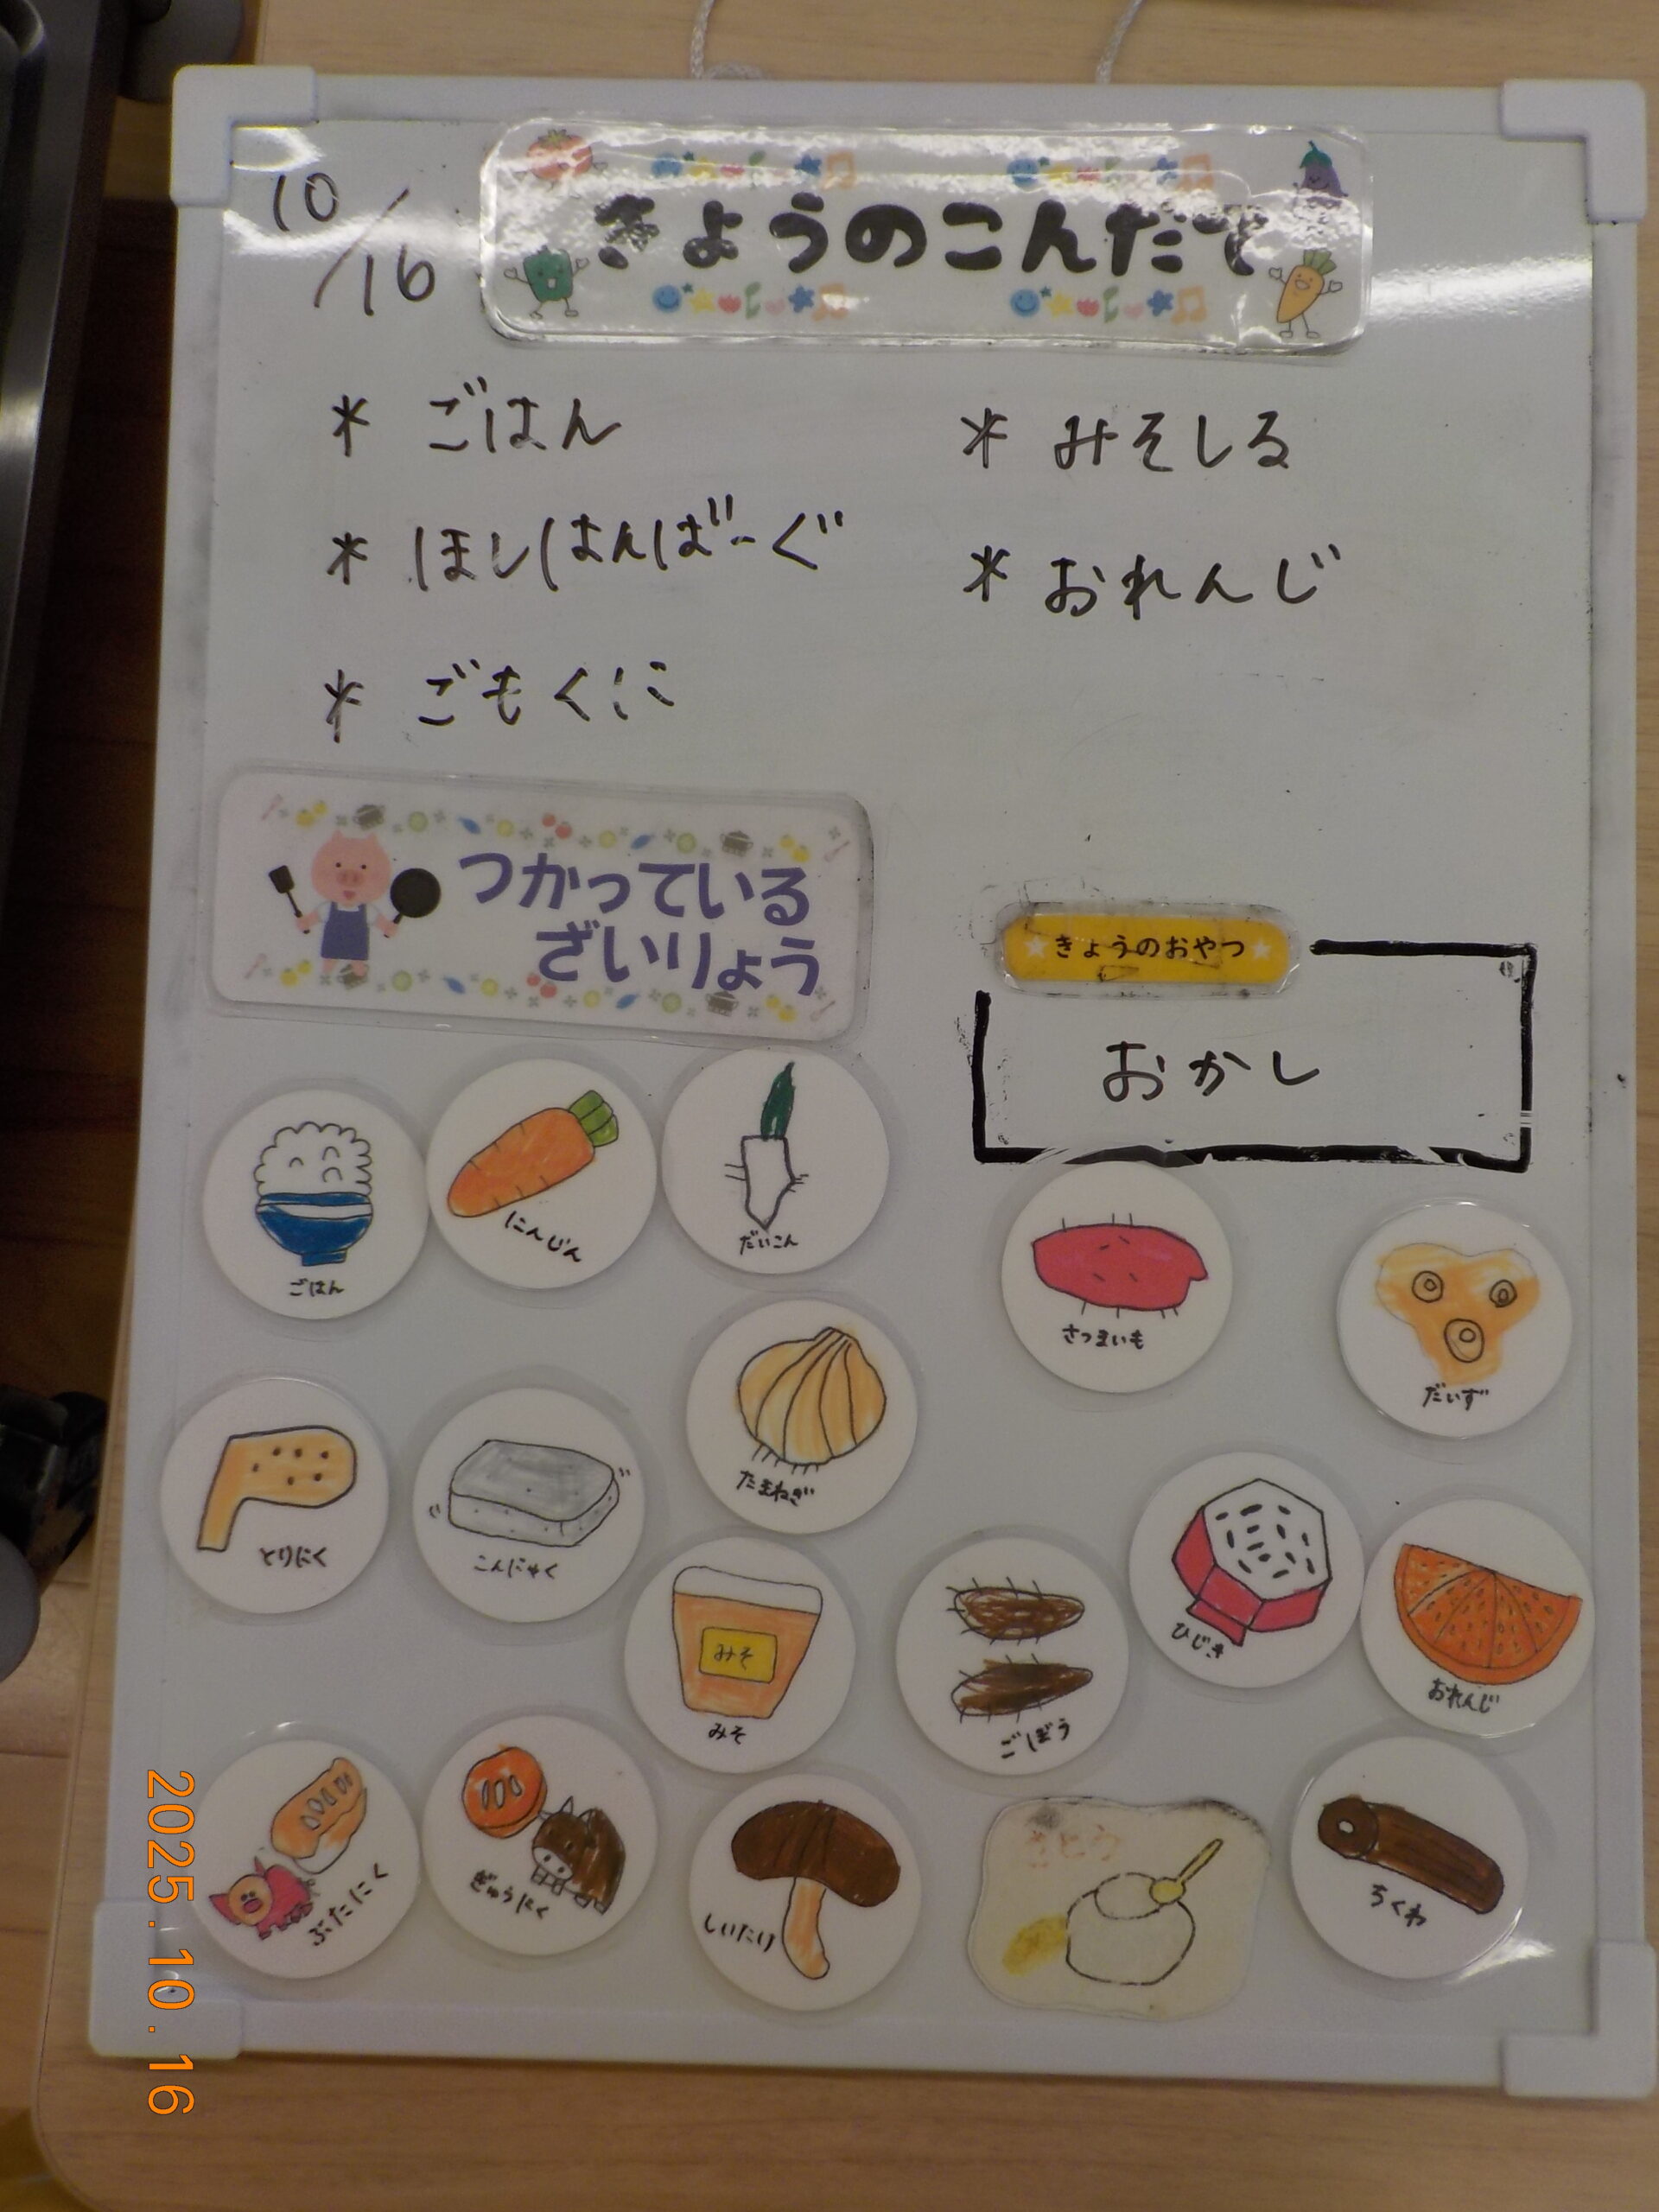 10/16
きょうのこんだて
* ごはん
* ほしはんばーぐ
* ごもくに
* みそしる
* おれんじ
つかっている
ざいりょう
きょうのおやつ
おかし
ごはん
にんじん
だいこん
さつまいも
だいず
とりにく
こんにゃく
たまねぎ
みそ
みそ
ごぼう
ひじき
おれんじ
ぶたにく
ぎゅうにく
しいたけ
さとう
ちくわ
2025.10.16